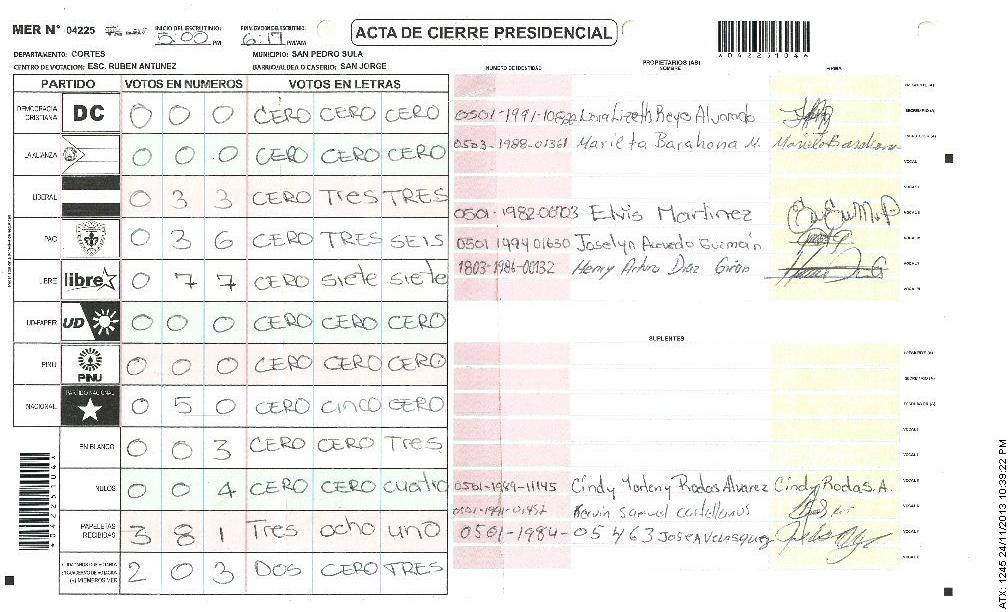 MER N° 04225 INICIO DEL ESCRUTINIO: 5:00 PM FINALIZACION DEL ESCRUTINIO: 6:17 PM/AM
ACTA DE CIERRE PRESIDENCIAL
*04225104*
DEPARTAMENTO: CORTES MUNICIPIO: SAN PEDRO SULA
CENTRO DE VOTACION: ESC. RUBEN ANTUNEZ BARRIO/ALDEA O CASERIO: SAN JORGE
NUMERO DE IDENTIDAD PROPIETARIOS (AS) NOMBRE FIRMA
PARTIDO VOTOS EN NUMEROS VOTOS EN LETRAS
DEMOCRACIA CRISTIANA DC 0 0 0 CERO CERO CERO
LA ALIANZA 0 0 0 CERO CERO CERO
LIBERAL 0 3 3 CERO Tres TRES
PAC 0 3 6 CERO TRES SEIS
LIBRE libre 0 7 7 CERO siete siete
UD-FAPER UD 0 0 0 CERO CERO CERO
PINU PINU 0 0 0 CERO CERO CERO
NACIONAL PARTIDO NACIONAL 0 5 0 CERO CINCO CERO
EN BLANCO 0 0 3 CERO CERO Tres
NULOS 0 0 4 CERO CERO cuatro
PAPELETAS RECIBIDAS 3 8 1 Tres ocho uno
2 0 3 DOS CERO TRES
(+) MIEMBROS MER
*04225104*
Marieta Barahona M. Marieta Barahona
Elvis Martinez
0501 1994 01630 Joselyn Acevedo Guzmán
1803-1986-00132 Henry Arturo Diaz Girón
SUPLENTES
0501-1989-11145 Cindy Yorleny Rodas Alvarez Cindy Rodas. A.
Kervin Samuel Castellanos
0501-1984-05463 JOSE A VELASQUEZ
ATX: 1245 24/11/2013 10:39:22 PM